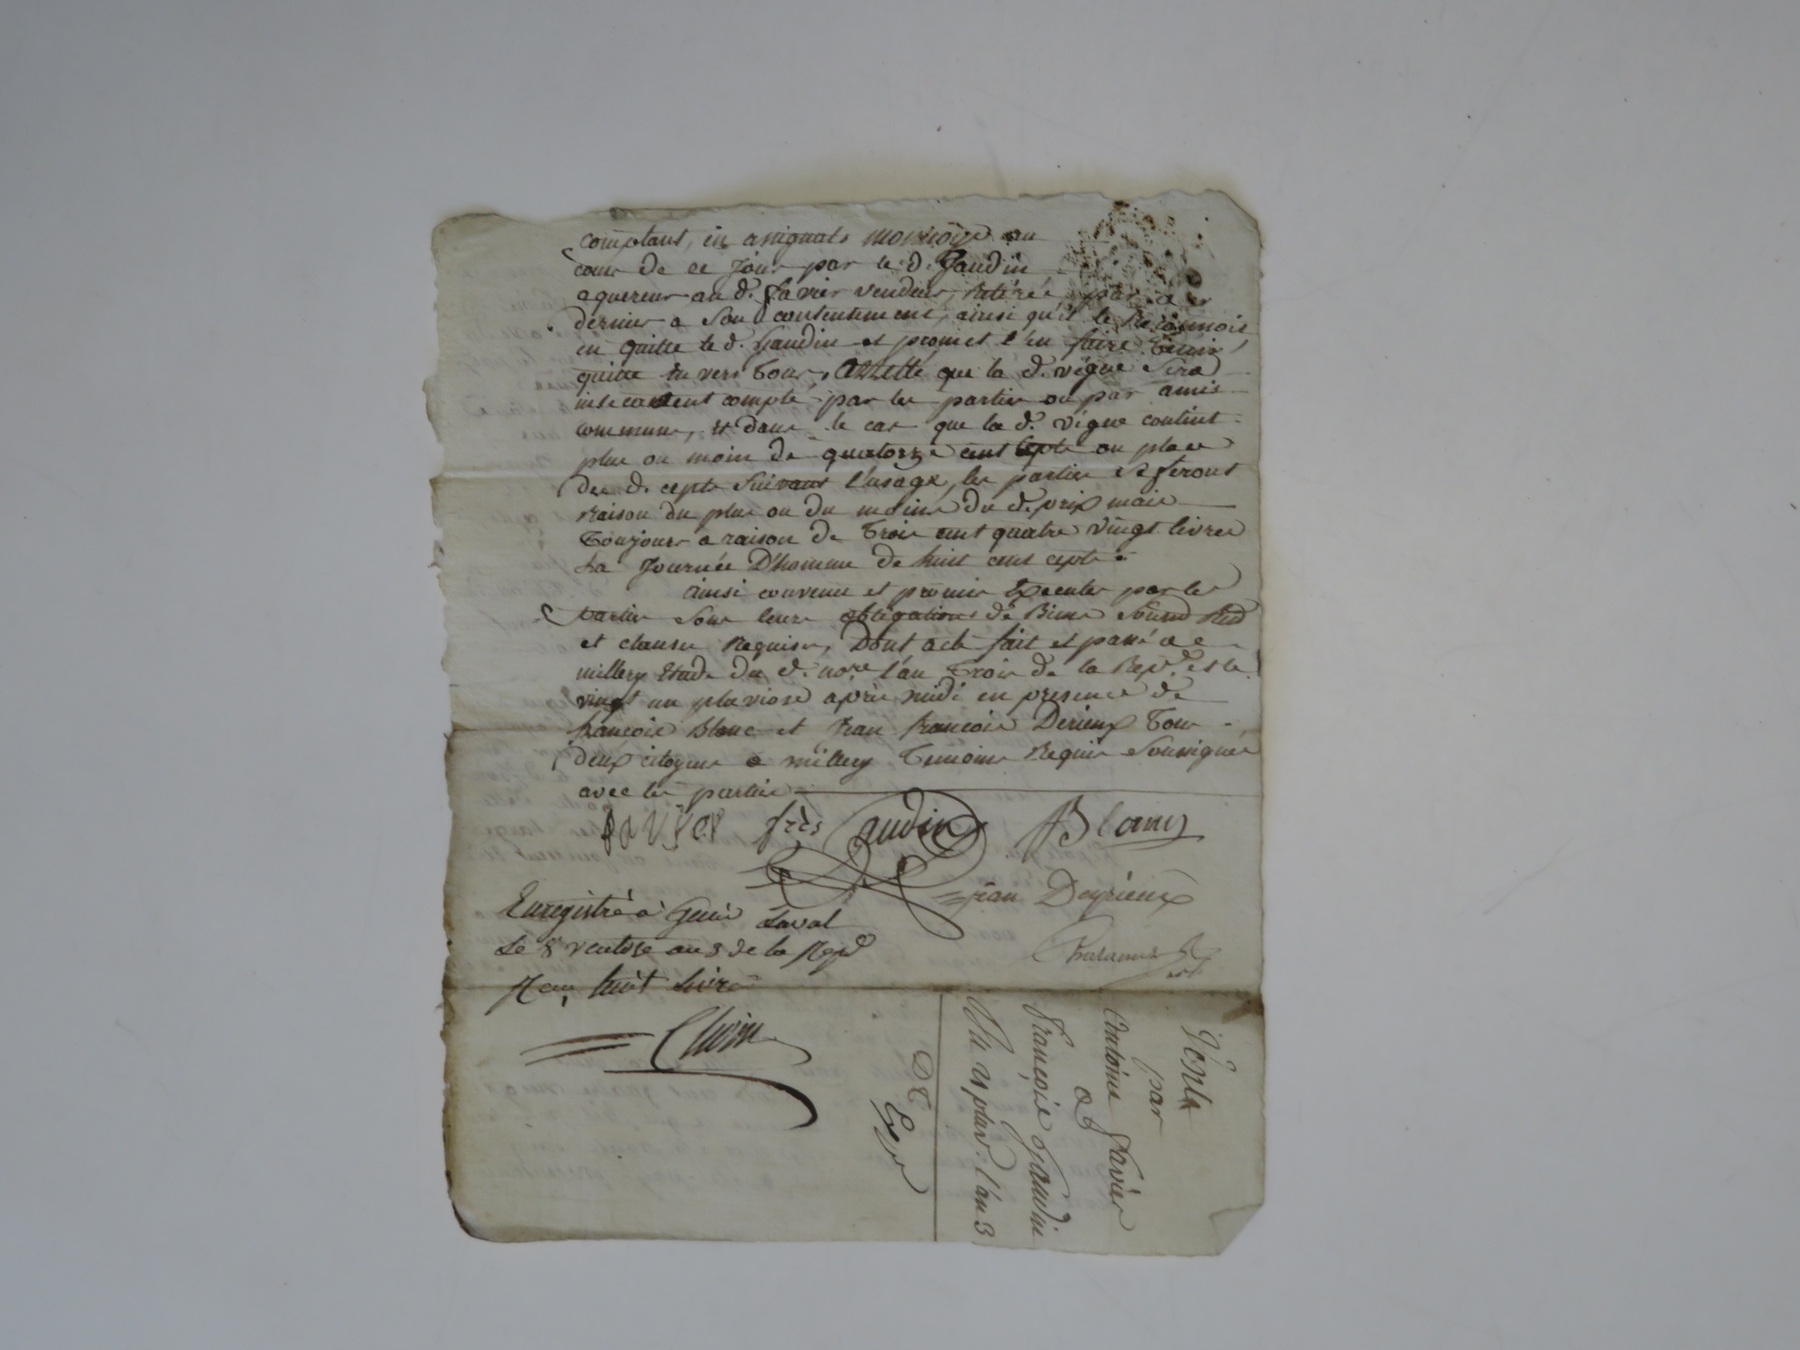 comptant, en assignats monnoye au
cour de ce jour par le d. Gaudin
aquereur au d. favier vendeur, retirée par ce
dernier a son contentement, ainsi qu'il le Reconnoit
en quitte le d. Gaudin et promet l'en faire tenir
quitte en vers tous, arretté que la d. vigne sera
incecament compté par les parties ou par amis
communs, et dans le cas que la d. vigne contint
plus ou moins de quatorze cent cepts ou place
des d. cepts suivant l'usage, les parties se feront
raison du plus ou du moins du d. prix mais
Toujours a raison de trois cent quatre vingt livres
La Journée D'homme de huit cent cepts.
ainsi convenu et promis Executer par les
parties sous leurs obligations de Biens
et clauses Requises, Dont acte fait et passé a
millery Etude du d. nore l'an trois de la Repe. et le
vingt un pluviose apres midi en presence de
françois Blanc et Jean francois Derieux tous
deux citoyens a millery Temoins Requis soussignés
avec les parties
favier frcs Gaudin Blanc
jean Deyrieux
Enregistré a Genis Laval
Le 8 ventose an 3 de la Repe
Reçu huit Livres
Vente
par
Antoine favier
a
François Gaudin
Du 21 pluv. l'an 3